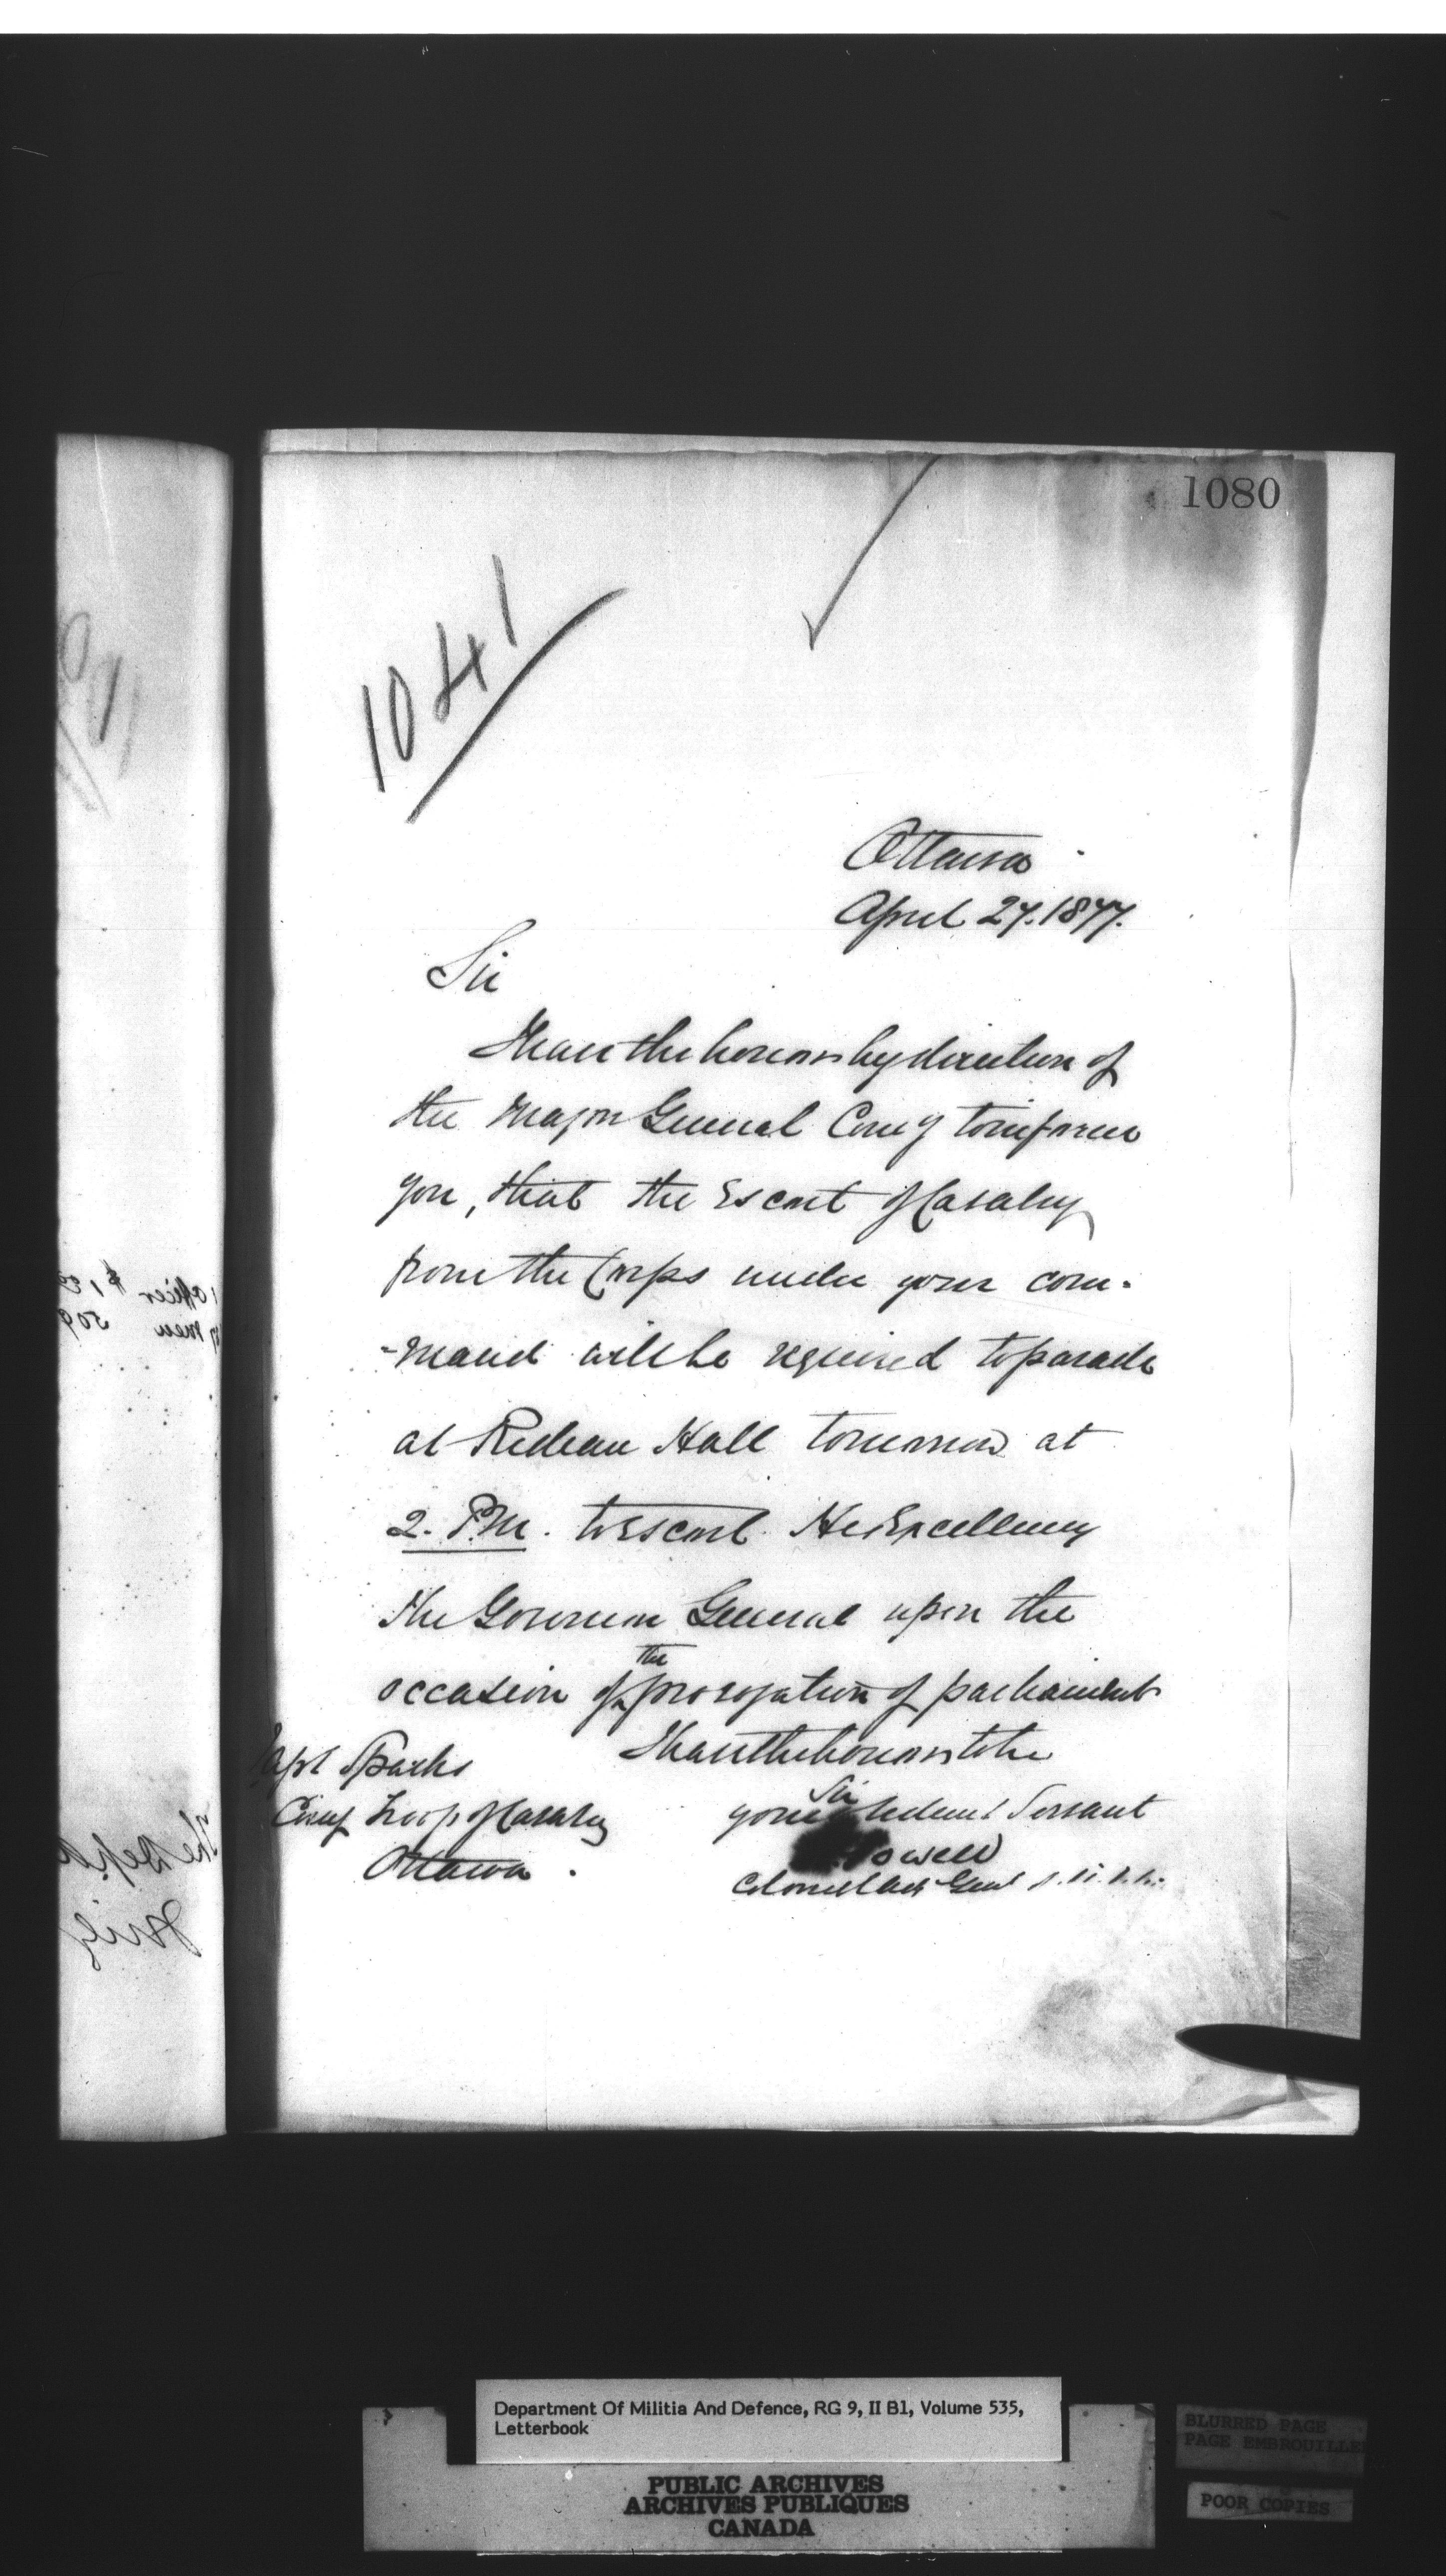 1080
1041
Ottawa
April 27. 1877.
Sir
I have the honor by direction of
the Major General Comg to inform
you, that the Escort of Cavalry
from the Corps under your com-
-mand will be required to parade
at Rideau Hall tomorrow at
2. P.M. to Escort His Excellency
the Governor General upon the
the
occasion of prorogation of parliament
I have the honor to be
Sir
your obedient Servant
Powell
Colonel Adj Genl
Capt Sparks
Comg Troop of Cavalry
Ottawa.
1 officer $1,
men 509
The Dep.
Department Of Militia And Defence, RG 9, II B1, Volume 535,
Letterbook
PUBLIC ARCHIVES
ARCHIVES PUBLIQUES
CANADA
BLURRED PAGE
PAGE EMBROUILLEE
POOR COPIES